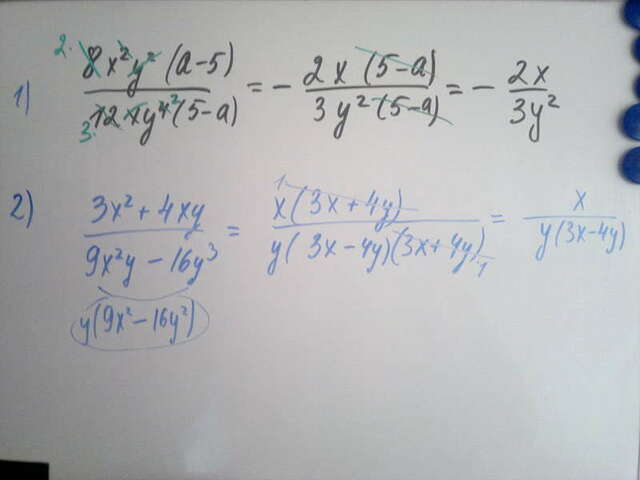 1) 8x²y²(a-5) / 12xy⁴(5-a) = - 2x(5-a) / 3y²(5-a) = - 2x / 3y²
2) 3x²+4xy / 9x²y-16y³ = x(3x+4y) / y(3x-4y)(3x+4y) = x / y(3x-4y)
y(9x²-16y²)